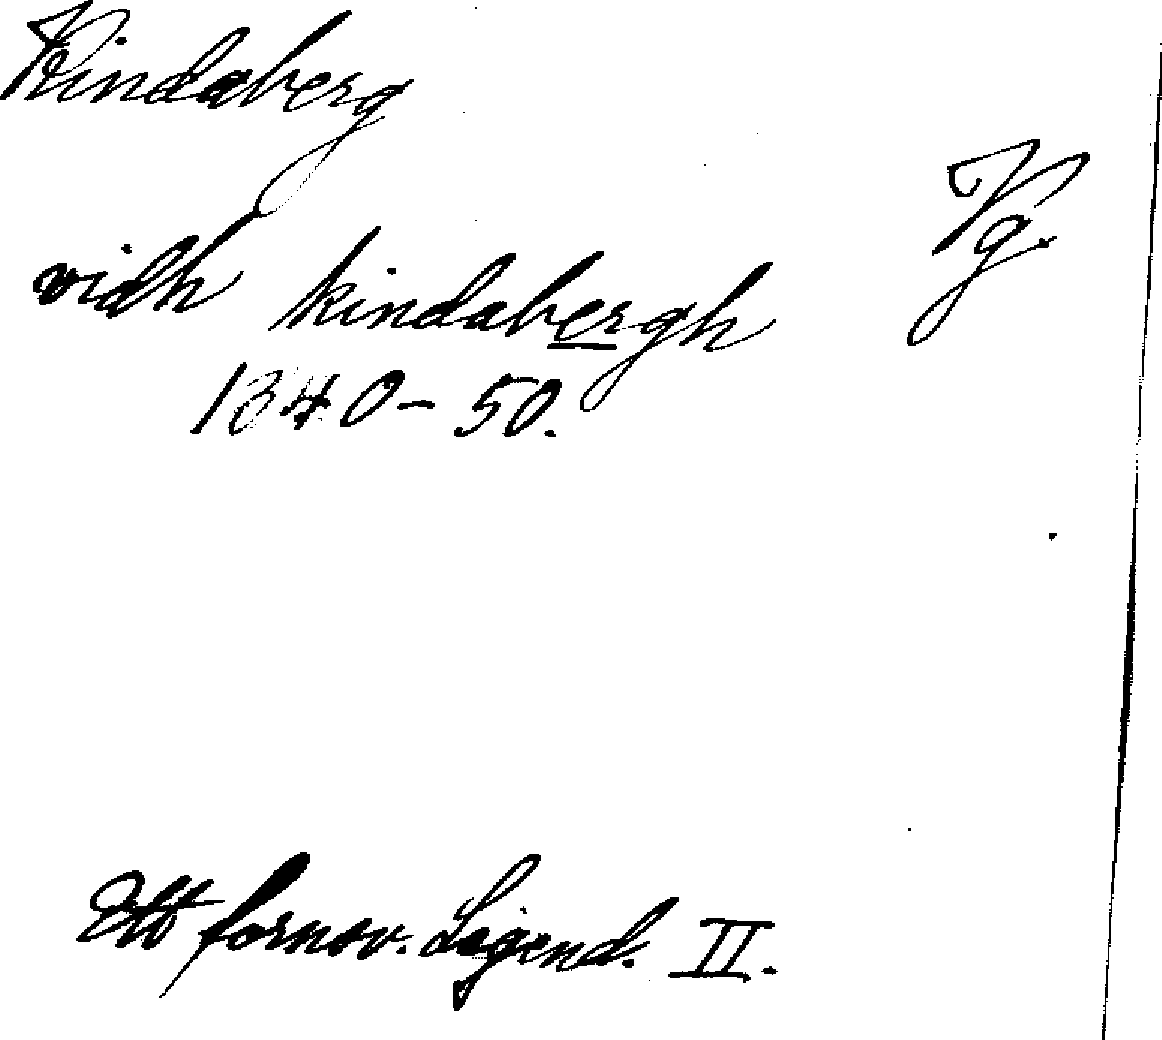 Kindaberg
Vg.
vidh kindabergh
1340-50.
Ett fornsv. Legend. II.